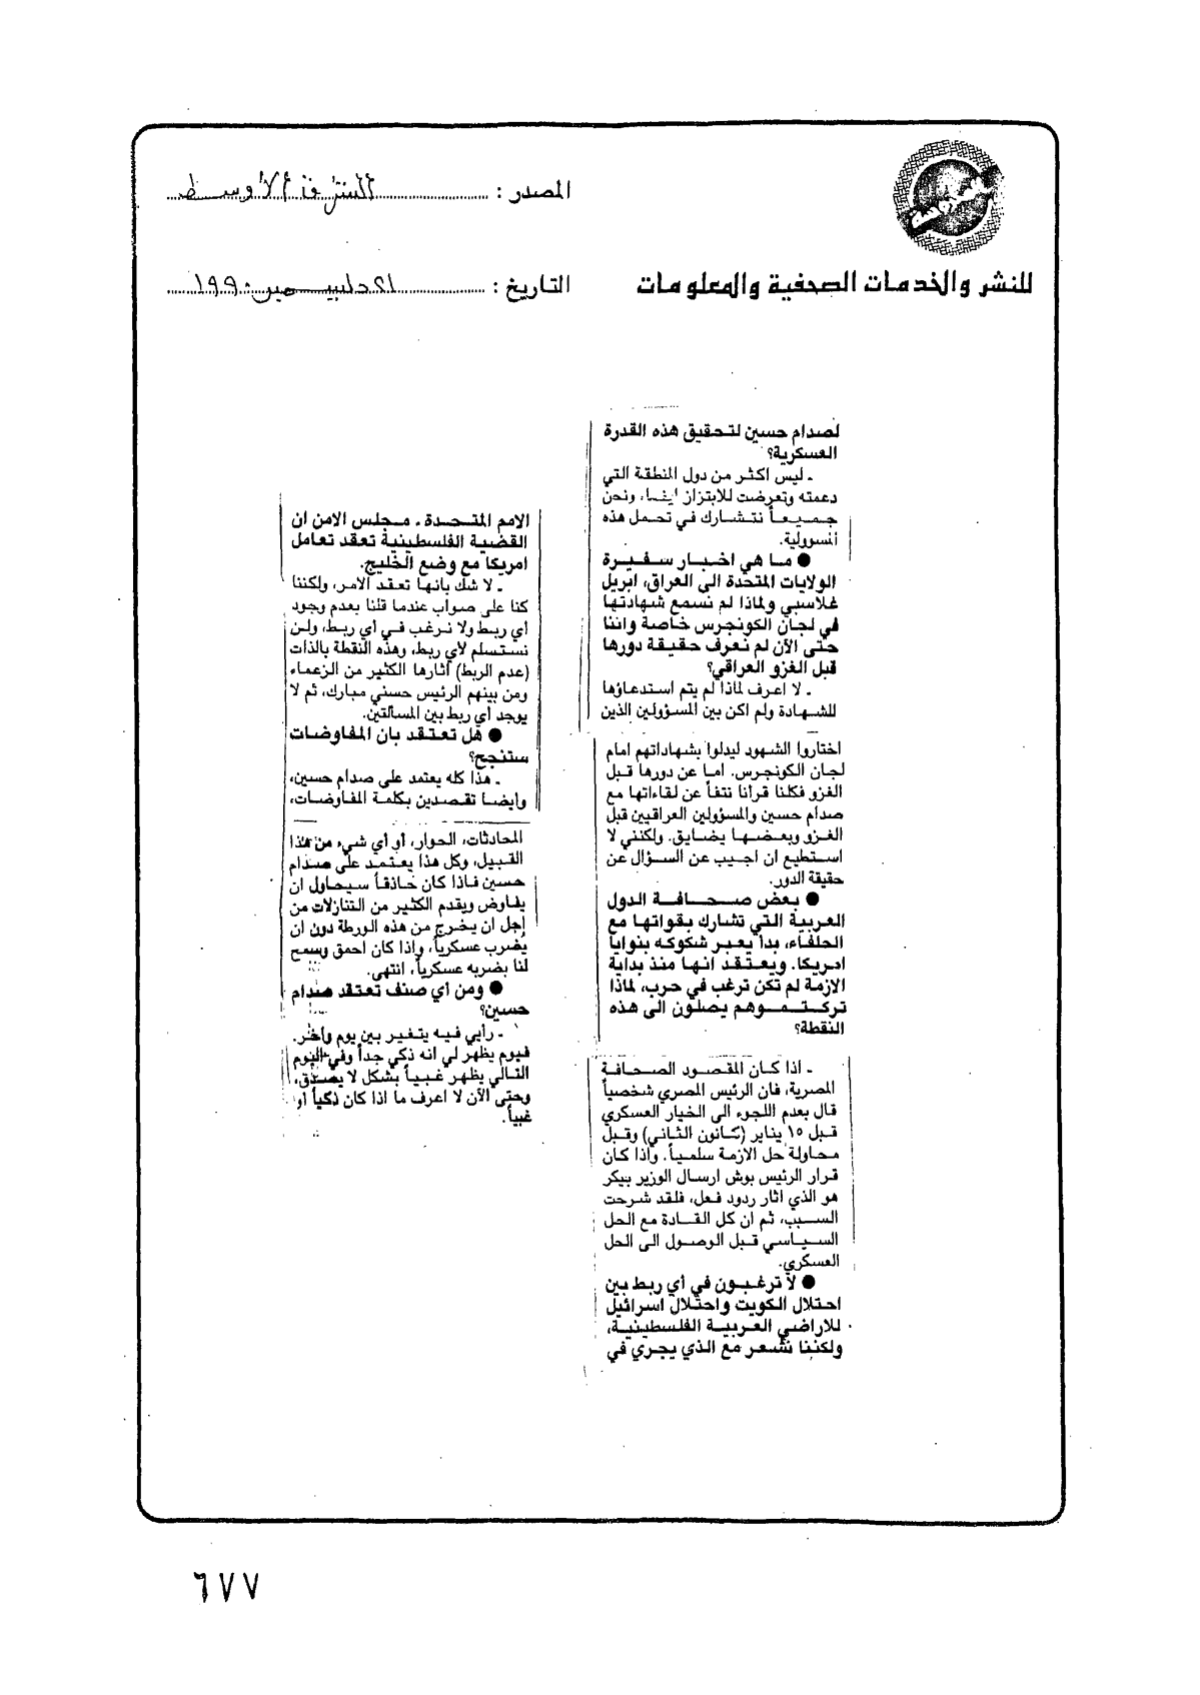 المصدر : الشرق الأوسط
للنشر والخدمات الصحفية والمعلومات
التاريخ : ٢١ ديسمبر ١٩٩٠
لصدام حسين لتحقيق هذه القدرة
العسكرية؟
ـ ليس اكثر من دول المنطقة التي
دعمته وتعرضت للابتزاز ايضا، ونحن
جميعاً نتشارك في تحمل هذه
المسؤولية.
● ما هي اخبار سفيرة
الولايات المتحدة الى العراق، ابريل
غلاسبي ولماذا لم نسمع شهادتها
في لجان الكونجرس خاصة واننا
حتى الآن لم نعرف حقيقة دورها
قبل الغزو العراقي؟
ـ لا اعرف لماذا لم يتم استدعاؤها
للشهادة ولم اكن بين المسؤولين الذين
اختاروا الشهود ليدلوا بشهاداتهم امام
لجان الكونجرس. اما عن دورها قبل
الغزو فكلنا قرأنا نتفاً عن لقاءاتها مع
صدام حسين والمسؤولين العراقيين قبل
الغزو وبعضها يضايق. ولكنني لا
استطيع ان اجيب عن السؤال عن
حقيقة الدور.
● بعض صحافة الدول
العربية التي تشارك بقواتها مع
الحلفاء، بدأ يعبر شكوكه بنوايا
امريكا. ويعتقد انها منذ بداية
الازمة لم تكن ترغب في حرب، لماذا
تركتموهم يصلون الى هذه
النقطة؟
ـ اذا كان المقصود الصحافة
المصرية، فان الرئيس المصري شخصياً
قال بعدم اللجوء الى الخيار العسكري
قبل ١٥ يناير (كانون الثاني) وقبل
محاولة حل الازمة سلمياً. واذا كان
قرار الرئيس بوش ارسال الوزير بيكر
هو الذي اثار ردود فعل، فلقد شرحت
السبب، ثم ان كل القادة مع الحل
السياسي قبل الوصول الى الحل
العسكري.
● لا ترغبون في أي ربط بين
احتلال الكويت واحتلال اسرائيل
للاراضي العربية الفلسطينية،
ولكننا نشعر مع الذي يجري في
الامم المتحدة ـ مجلس الامن ان
القضية الفلسطينية تعقد تعامل
امريكا مع وضع الخليج.
ـ لا شك بانها تعقد الامر، ولكننا
كنا على صواب عندما قلنا بعدم وجود
أي ربط ولا نرغب في أي ربط، ولن
نستسلم لأي ربط، وهذه النقطة بالذات
(عدم الربط) اثارها الكثير من الزعماء
ومن بينهم الرئيس حسني مبارك، ثم لا
يوجد أي ربط بين المسألتين.
● هل تعتقد بان المفاوضات
ستنجح؟
ـ هذا كله يعتمد على صدام حسين،
وايضا تقصدين بكلمة المفاوضات،
المحادثات، الحوار، أو أي شيء من هذا
القبيل، وكل هذا يعتمد على صدام
حسين فاذا كان حاذقاً سيحاول ان
يفاوض ويقدم الكثير من التنازلات من
اجل ان يخرج من هذه الورطة دون ان
يضرب عسكرياً، واذا كان احمق وسمح
لنا بضربه عسكرياً، انتهى.
● ومن أي صنف تعتقد صدام
حسين؟
ـ رأيي فيه يتغير بين يوم وآخر.
فيوم يظهر لي انه ذكي جداً وفي اليوم
التالي يظهر غبياً بشكل لا يصدق،
وحتى الآن لا اعرف ما اذا كان ذكياً او
غبياً.
٦٧٧